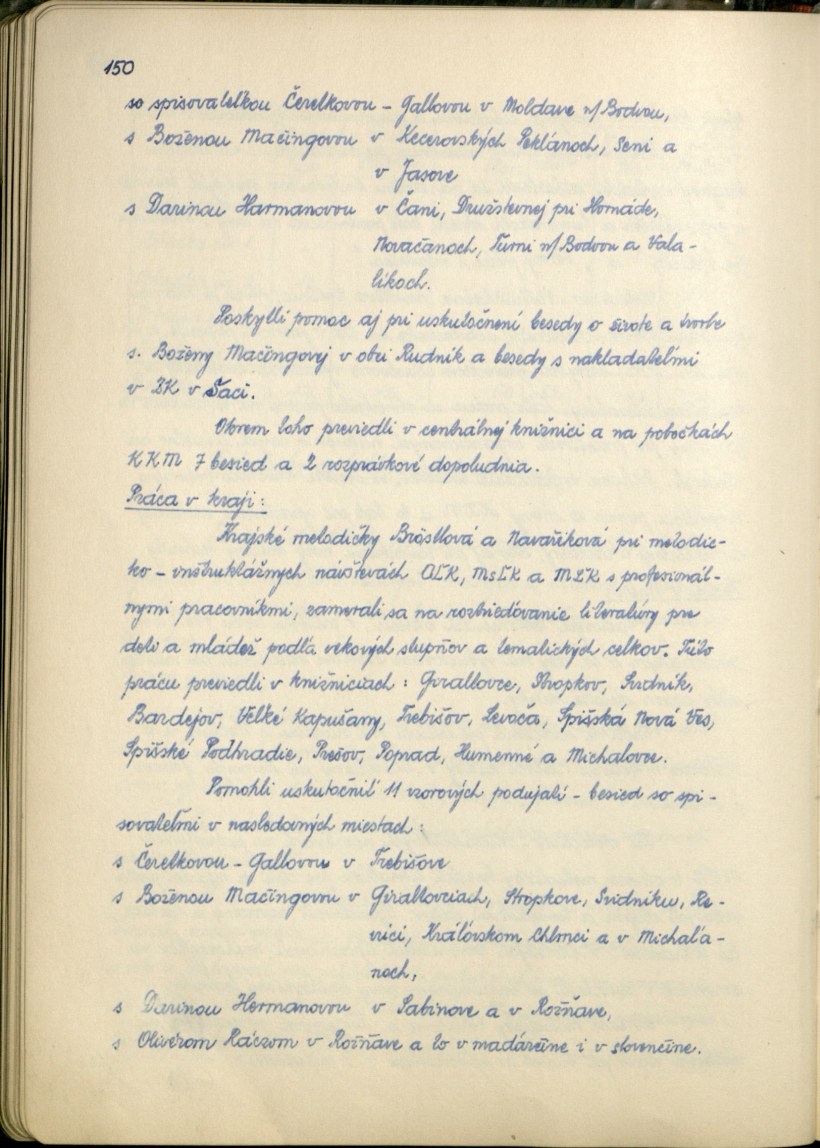 150
so spisovateľkou Čerelkovou - Gallovou v Moldave n/Bodvou,
s Boženou Mačingovou v Kecerovských Peklánoch, Seni a
v Jasove
s Darinou Harmanovou v Čani, Družstevnej pri Hornáde,
Novačanoch, Turni n/Bodvou a Vala-
likoch.
Poskytli pomoc aj pri uskutočnení besedy o živote a tvorbe
s. Boženy Mačingovej v obci Rudník a besedy s nakladateľmi
v ZK v Šaci.
Okrem toho previedli v centrálnej knižnici a na pobočkách
KKM 7 besied a 2 rozprávkové dopoludnia.
Práca v kraji:
Krajské metodičky Bröstlová a Navaříková pri metodic-
ko - inštruktážnych návštevách OĽK, MsĽK a MĽK s profesionál-
nymi pracovníkmi, zamerali sa na roztrieďovanie literatúry pre
deti a mládež podľa vekových stupňov a tematických celkov. Túto
prácu previedli v knižniciach: Giraltovce, Stropkov, Svidník,
Bardejov, Veľké Kapušany, Trebišov, Levoča, Spišská Nová Ves,
Spišské Podhradie, Prešov, Poprad, Humenné a Michalovce.
Pomohli uskutočniť 11 vzorových podujatí - besied so spi-
sovateľmi v nasledovných miestach:
s Čerelkovou - Gallovou v Trebišove
s Boženou Mačingovou v Giraltovciach, Stropkove, Svidníku, Re-
vúci, Kráľovskom Chlmci a v Michaľa-
noch,
s Darinou Hermanovou v Sabinove a v Rožňave,
s Olivérom Ráczom v Rožňave a to v maďarčine i v slovenčine.